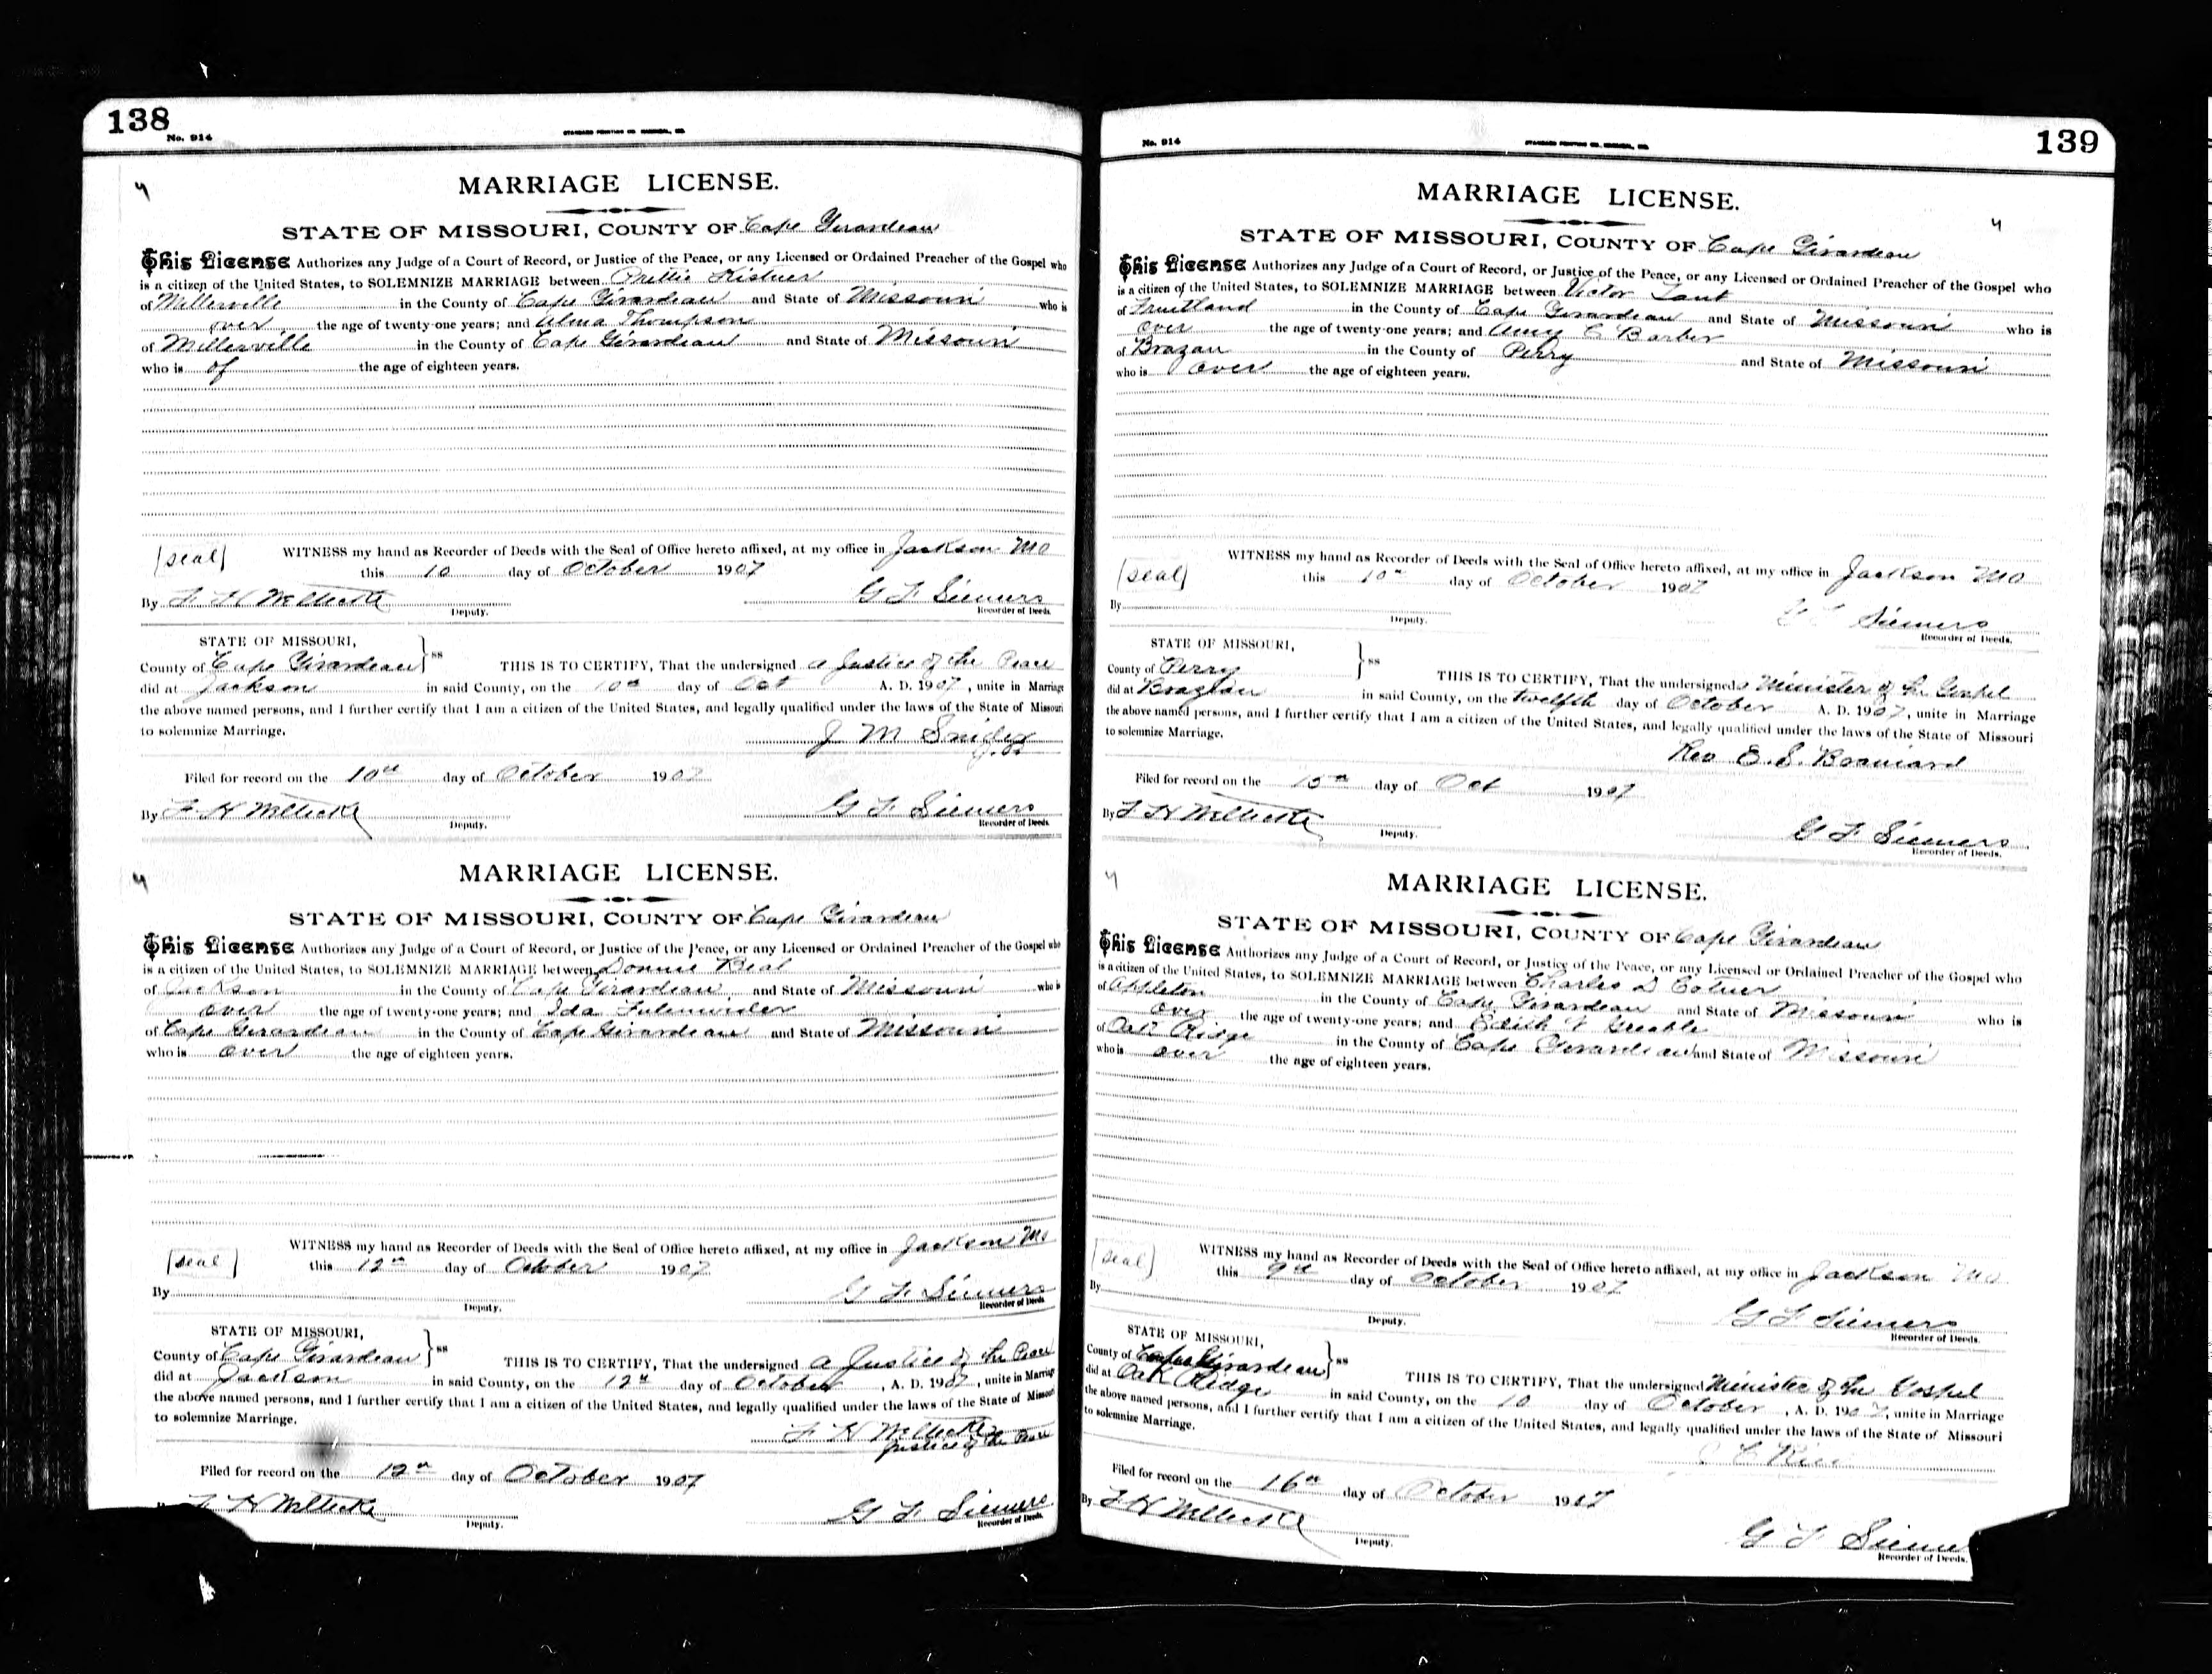 138
No. 914
MARRIAGE LICENSE.
STATE OF MISSOURI, COUNTY OF Cape Girardeau
This License Authorizes any Judge of a Court of Record, or Justice of the Peace, or any Licensed or Ordained Preacher of the Gospel who
is a citizen of the United States, to SOLEMNIZE MARRIAGE between Kistner
of Millerville in the County of Cape Girardeau and State of Missouri who is
over the age of twenty-one years; and Alma Thompson
of Millerville in the County of Cape Girardeau and State of Missouri
who is of the age of eighteen years.
(seal) WITNESS my hand as Recorder of Deeds with the Seal of Office hereto affixed, at my office in Jackson Mo
this 10 day of October 1907
By F H G F Siemers
Deputy. Recorder of Deeds.
STATE OF MISSOURI,
County of Cape Girardeau } ss THIS IS TO CERTIFY, That the undersigned a Justice of the Peace
did at Jackson in said County, on the 10th day of Oct A. D. 1907, unite in Marriage
the above named persons, and I further certify that I am a citizen of the United States, and legally qualified under the laws of the State of Missouri
to solemnize Marriage.
J M Snider
J.P.
Filed for record on the 10th day of October 1907
By F H G F Siemers
Deputy. Recorder of Deeds.
MARRIAGE LICENSE.
STATE OF MISSOURI, COUNTY OF Cape Girardeau
This License Authorizes any Judge of a Court of Record, or Justice of the Peace, or any Licensed or Ordained Preacher of the Gospel who
is a citizen of the United States, to SOLEMNIZE MARRIAGE between Donnie Beal
of Jackson in the County of Cape Girardeau and State of Missouri who is
over the age of twenty-one years; and Ida Fulenwider
of Cape Girardeau in the County of Cape Girardeau and State of Missouri
who is over the age of eighteen years.
(seal) WITNESS my hand as Recorder of Deeds with the Seal of Office hereto affixed, at my office in Jackson Mo
this 12th day of October 1907
By G F Siemers
Deputy. Recorder of Deeds.
STATE OF MISSOURI,
County of Cape Girardeau } ss THIS IS TO CERTIFY, That the undersigned a Justice of the Peace
did at Jackson in said County, on the 12th day of October, A. D. 1907, unite in Marriage
the above named persons, and I further certify that I am a citizen of the United States, and legally qualified under the laws of the State of Missouri
to solemnize Marriage.
F H
Justice of the Peace
Filed for record on the 12th day of October 1907
F H G F Siemers
Deputy. Recorder of Deeds.
139
No. 914
MARRIAGE LICENSE.
STATE OF MISSOURI, COUNTY OF Cape Girardeau
This License Authorizes any Judge of a Court of Record, or Justice of the Peace, or any Licensed or Ordained Preacher of the Gospel who
is a citizen of the United States, to SOLEMNIZE MARRIAGE between Victor
of Fruitland in the County of Cape Girardeau and State of Missouri who is
over the age of twenty-one years; and Amy C Barber
of Brazau in the County of Perry and State of Missouri
who is over the age of eighteen years.
(seal) WITNESS my hand as Recorder of Deeds with the Seal of Office hereto affixed, at my office in Jackson Mo
this 10th day of October 1907
By G F Siemers
Deputy. Recorder of Deeds.
STATE OF MISSOURI,
County of Perry } ss THIS IS TO CERTIFY, That the undersigned a Minister of the Gospel
did at in said County, on the twelfth day of October A. D. 1907, unite in Marriage
the above named persons, and I further certify that I am a citizen of the United States, and legally qualified under the laws of the State of Missouri
to solemnize Marriage.
Rev E. S. Brainard
Filed for record on the 15th day of Oct 1907
By F H G F Siemers
Deputy. Recorder of Deeds.
MARRIAGE LICENSE.
STATE OF MISSOURI, COUNTY OF Cape Girardeau
This License Authorizes any Judge of a Court of Record, or Justice of the Peace, or any Licensed or Ordained Preacher of the Gospel who
is a citizen of the United States, to SOLEMNIZE MARRIAGE between Charles D Cotner
of Appleton in the County of Cape Girardeau and State of Missouri who is
over the age of twenty-one years; and Edith
of Oak Ridge in the County of Cape Girardeau and State of Missouri
who is over the age of eighteen years.
(seal) WITNESS my hand as Recorder of Deeds with the Seal of Office hereto affixed, at my office in Jackson Mo
this 9th day of October 1907
By G F Siemers
Deputy. Recorder of Deeds.
STATE OF MISSOURI,
County of Cape Girardeau } ss THIS IS TO CERTIFY, That the undersigned Minister of the Gospel
did at Oak Ridge in said County, on the 10 day of October, A. D. 1907, unite in Marriage
the above named persons, and I further certify that I am a citizen of the United States, and legally qualified under the laws of the State of Missouri
to solemnize Marriage.
Filed for record on the 16th day of October 1907
By F H G F Siemers
Deputy. Recorder of Deeds.